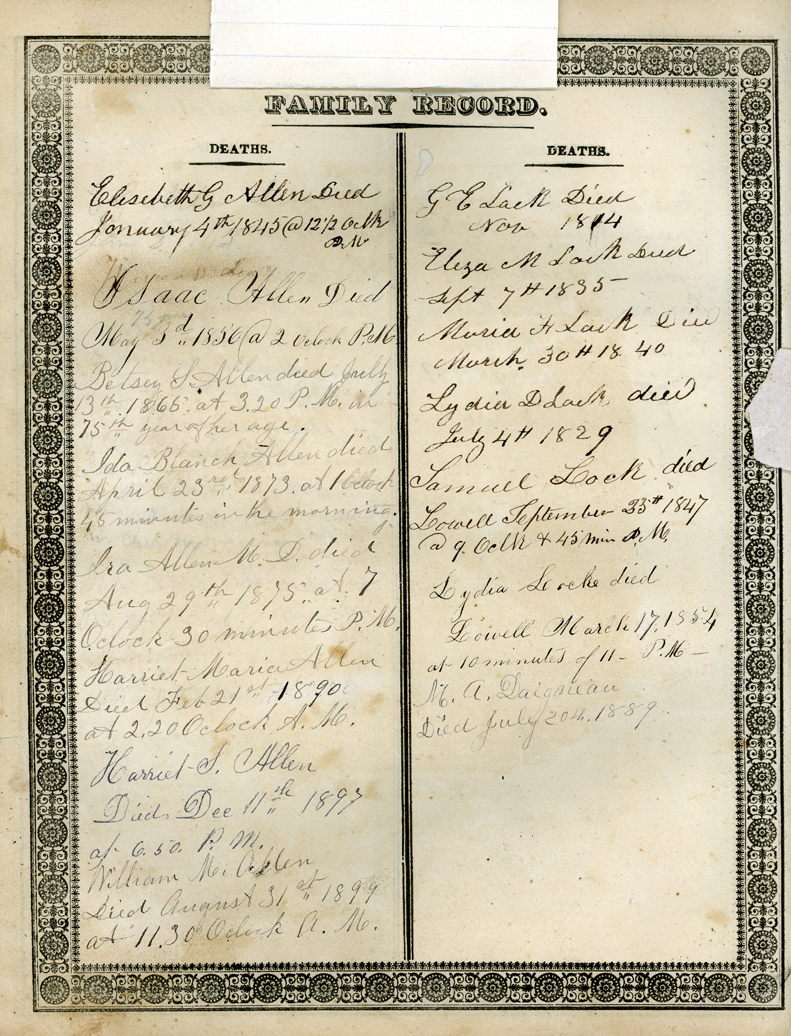 FAMILY RECORD.
DEATHS.
Elisebeth G Allen Died
January 4th 1845 @ 12 1/2 Oclk
P.M
Isaac Allen Died
May 3d 1856 @ 2 oclock P.M
Betsey S. Allen died July
13th 1865. at 3.20 P.M. in
75th year of her age.
Ida Blanch Allen died
April 23rd 1873. at 1 Oclock
45 minutes in the morning.
Ira Allen M. D. died
Aug 29th 1875. at 7
Oclock 30 minutes P. M.
Harriet Maria Allen
Died Feb 21st 1890
at 2.20 Oclock A. M.
Harriet S. Allen
Died Dec 11th 1897
at 6.50. P. M.
William M. Allen
Died August 31st 1899
at 11.30 Oclock A. M.
DEATHS.
G E Lock Died
Nov 1814
Eliza M Lock Died
Sept 7th 1835
Maria F Lock Died
March 30th 1840
Lydia D Lock died
July 4th 1829
Samuel Lock died
Lowell September 1847
@ 9. Oclk & 45 min P.M.
Lydia Locke died
Lowell March 17. 1854
at 10 minutes of 11 - P.M -
M. A. Daigneau
Died July 20th. 1889